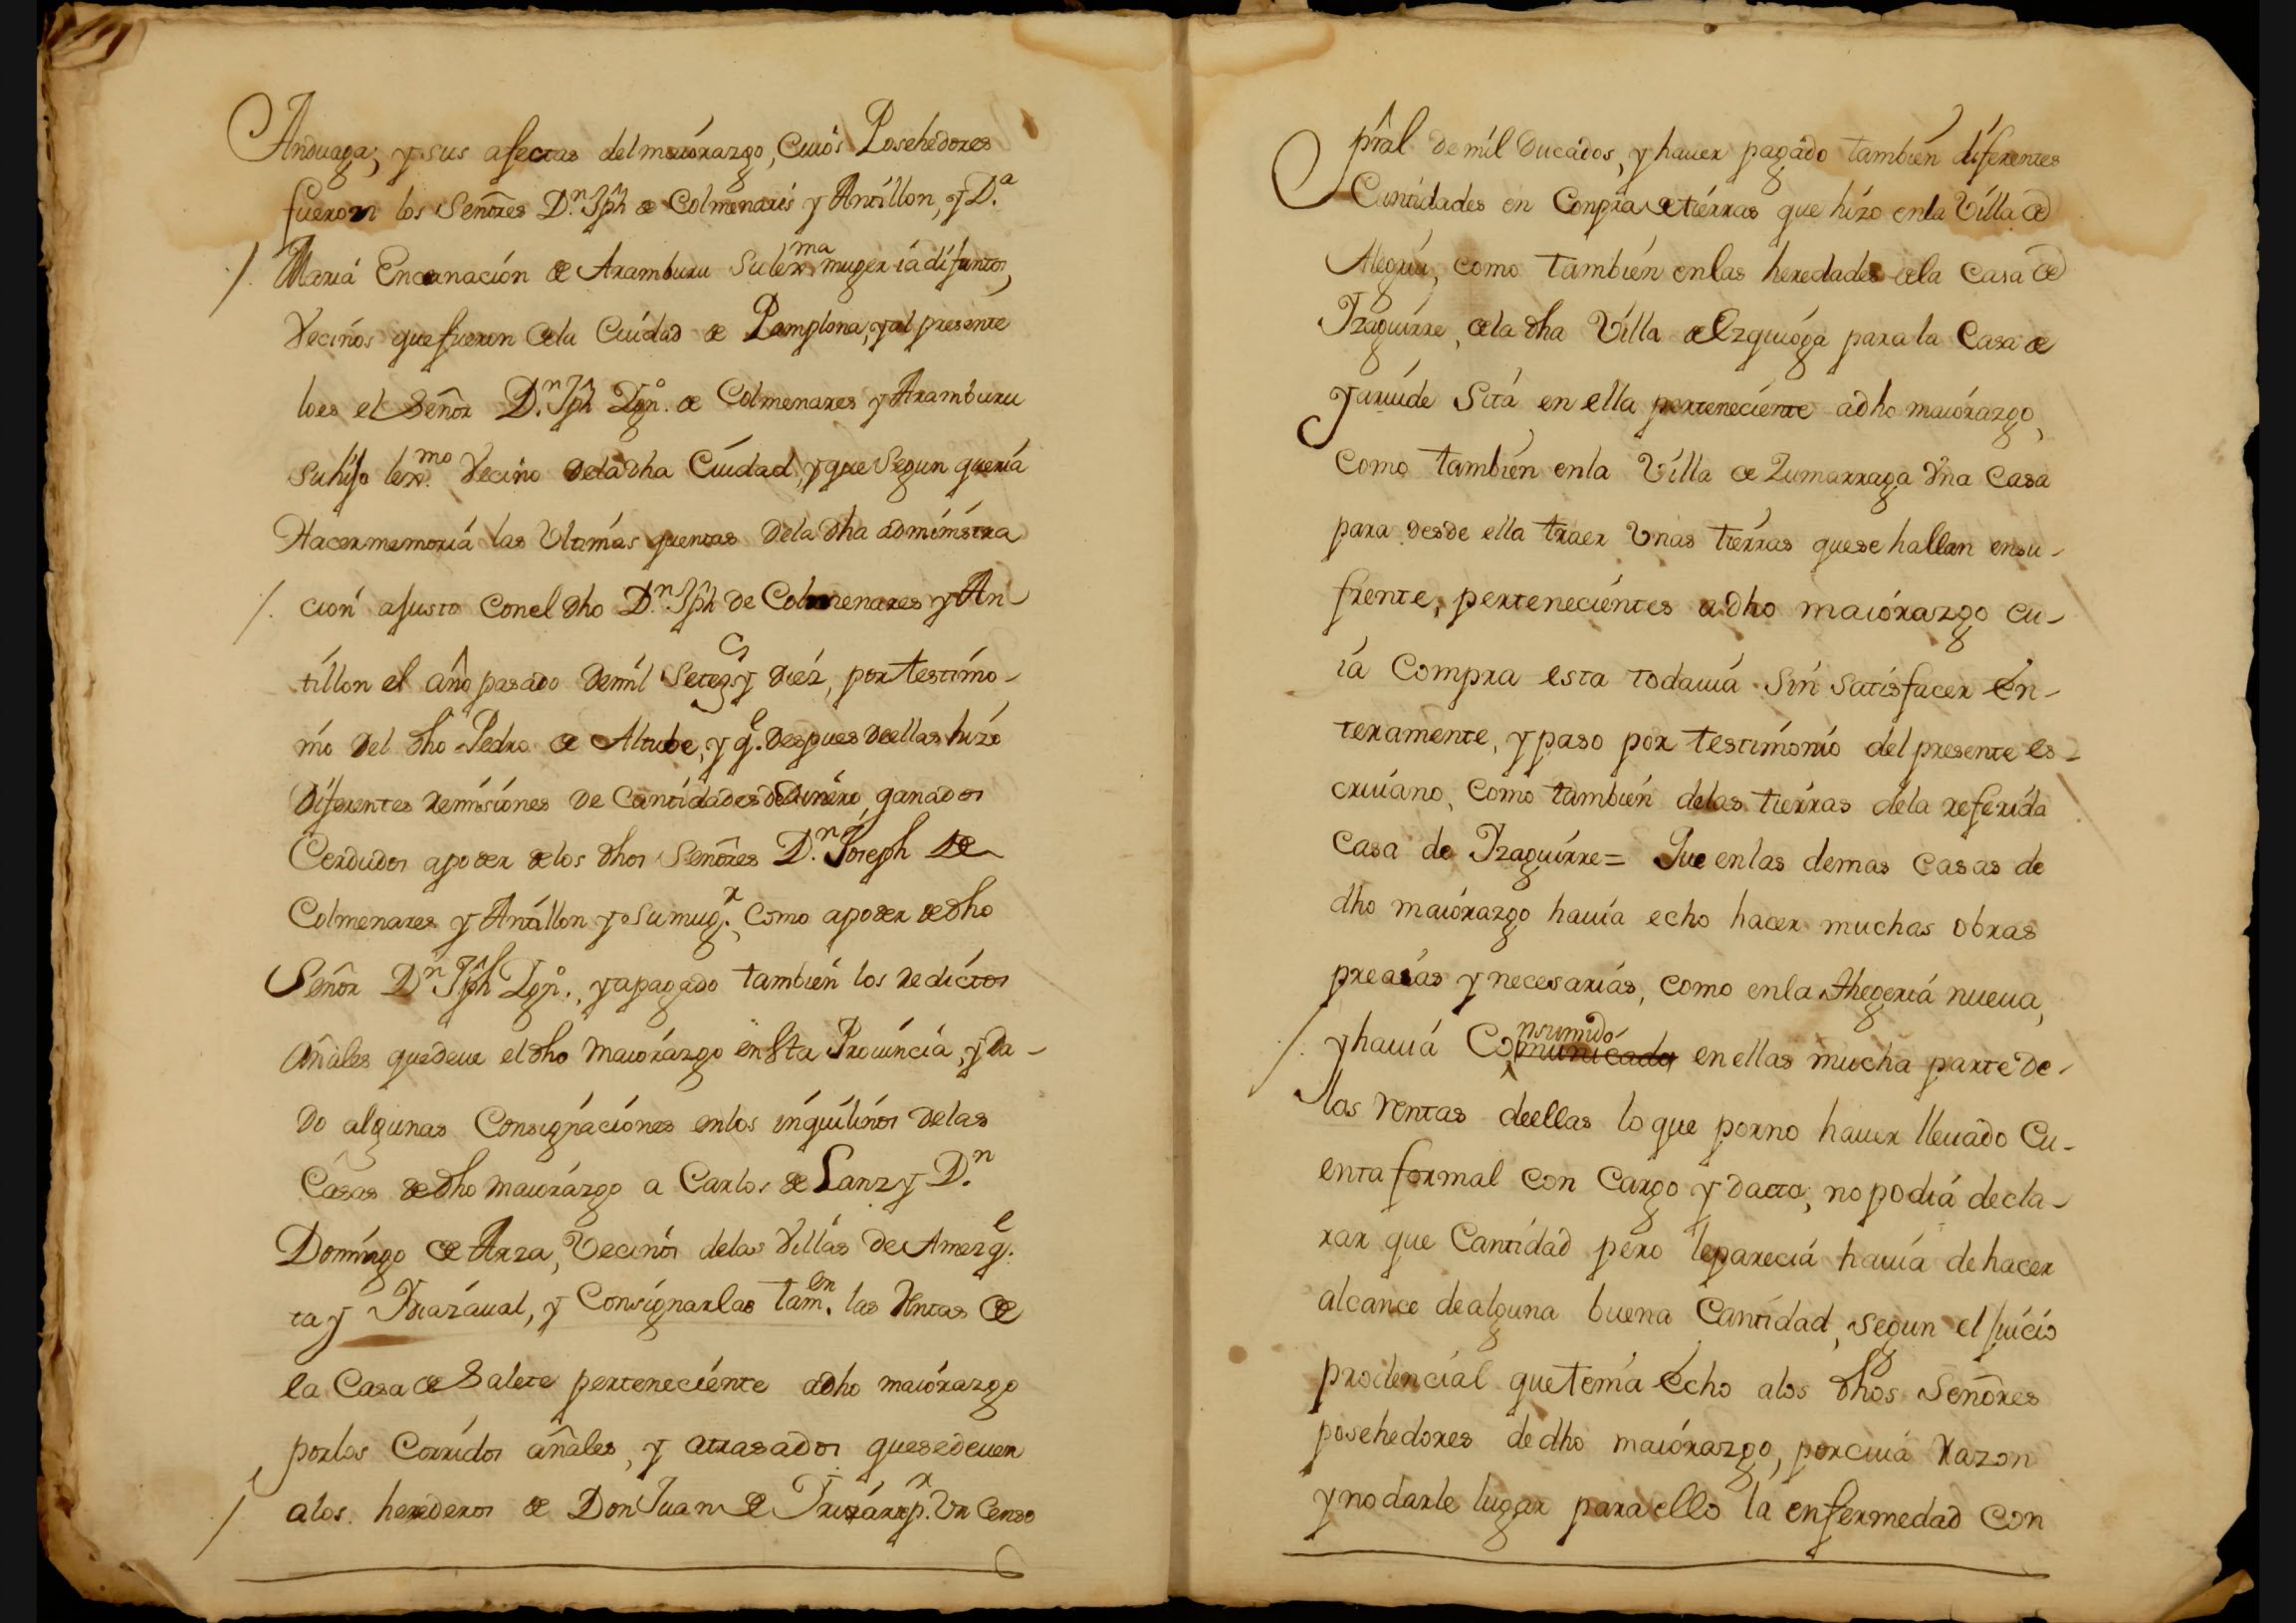 Anduaga, y sus afectas del maiorazgo, cuios Posehedores
fueron los Señores D.n Jph de Colmenares y Antillon, y D.a
Maria Encarnación de Aramburu su lex.ma muger ia difuntos,
Vecinos que fueron de la Ciudad de Pamplona, y al presente
lo es el Señor D.n Jph Ign.o de Colmenares y Aramburu
su hijo lex.mo Vecino de la dha Ciudad, y que segun queria
Hacer memoria las Vltimas quentas de la dha administra
cion ajusto con el dho D.n Jph de Colmenares y An
tillon el año pasado de mil Setecs y diez, por testimo-
nio del dho Pedro de Altube, y q.e despues de ellas hizo
diferentes remisiones de Cantidades de dinero, ganados
Cerdudos a poder de los dhos Señores D.n Joseph de
Colmenares y Antillon y su mug.r, como a poder de dho
Señor D.n Jph Ign.o, y a pagado tambien los redictos
añales que deue el dho maiorazgo en esta Prouincia, y da-
do algunas Consignaciones en los inquilinos de las
Casas de dho maiorazgo a Carlos de Lanz y D.n
Domingo de Arza, Vecinos de las Villas de Amezq.e
ta y Ydiazaual, y Consignarlas tam.en las Rentas de
la Casa de Salete perteneciente a dho maiorazgo
por los Corridos añales, y atrasados que se deuen
a los herederos de Don Juan de p.r Vn Censo
pral de mil Ducados, y hauer pagado tambien diferentes
Cantidades en Conpra de tierras que hizo en la Villa de
Alegria, como tambien en las heredades de la Casa de
Yzaguirre, de la dha Villa de Ezquioga para la Casa de
Yarude Sita en ella perteneciente a dho maiorazgo,
Como tambien en la Villa de Zumarraga Vna Casa
para desde ella traer Vnas tierras que se hallan en su-
frente, pertenecientes a dho maiorazgo cu-
ia Compra esta todauia sin satisfacer En-
teramente, y paso por testimonio del presente es-
criuano, Como tambien de las tierras de la referida
Casa de Yzaguirre = Que en las demas casas de
dho maiorazgo hauia echo hacer muchas obras
precisas y necesarias, como en la Thegeria nueua,
y hauia Consumido en ellas mucha parte de-
las Rentas de ellas lo que por no hauer lleuado Cu-
enta formal con Cargo y datta, no podia decla-
rar que Cantidad pero le parecia hauia de hacer
alcance de alguna buena Cantidad, segun el juicio
prodencial que tenia Echo a los dhos Señores
posehedores de dho maiorazgo, por cuia Razon
y no darle lugar para ello la enfermedad con